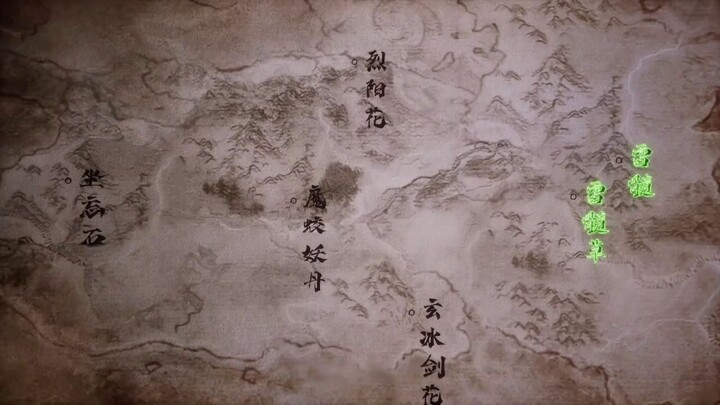 烈阳花
坐忘石
魔蛟妖丹
雪髓
雪髓草
玄冰剑花